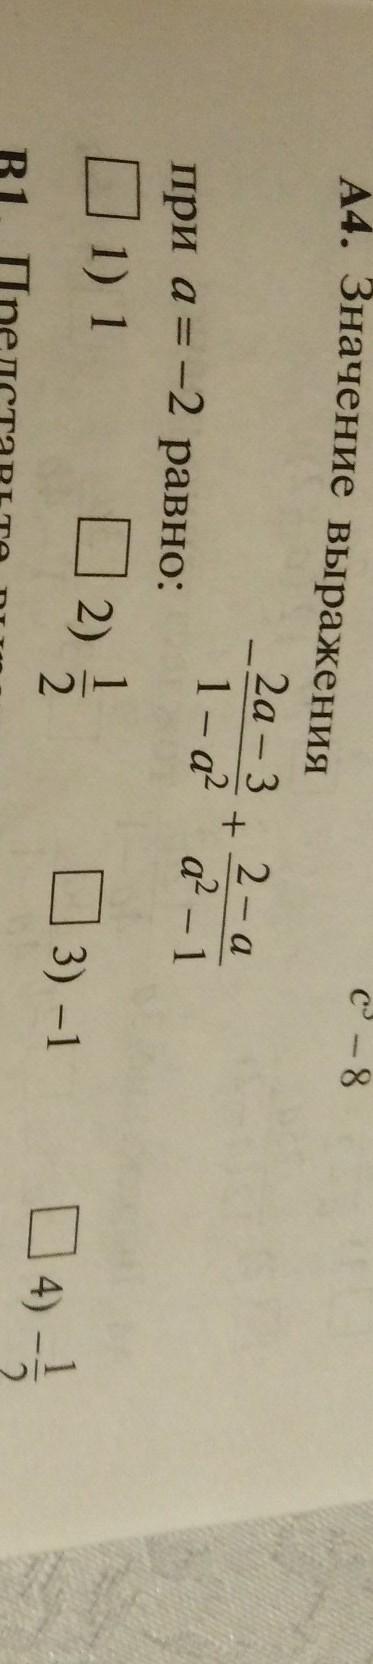 c³ – 8
А4. Значение выражения
–(2a – 3)/(1 – a²) + (2 – a)/(a² – 1)
при a = –2 равно:
1) 1 2) 1/2 3) –1 4) –1/2
В1. Представьте